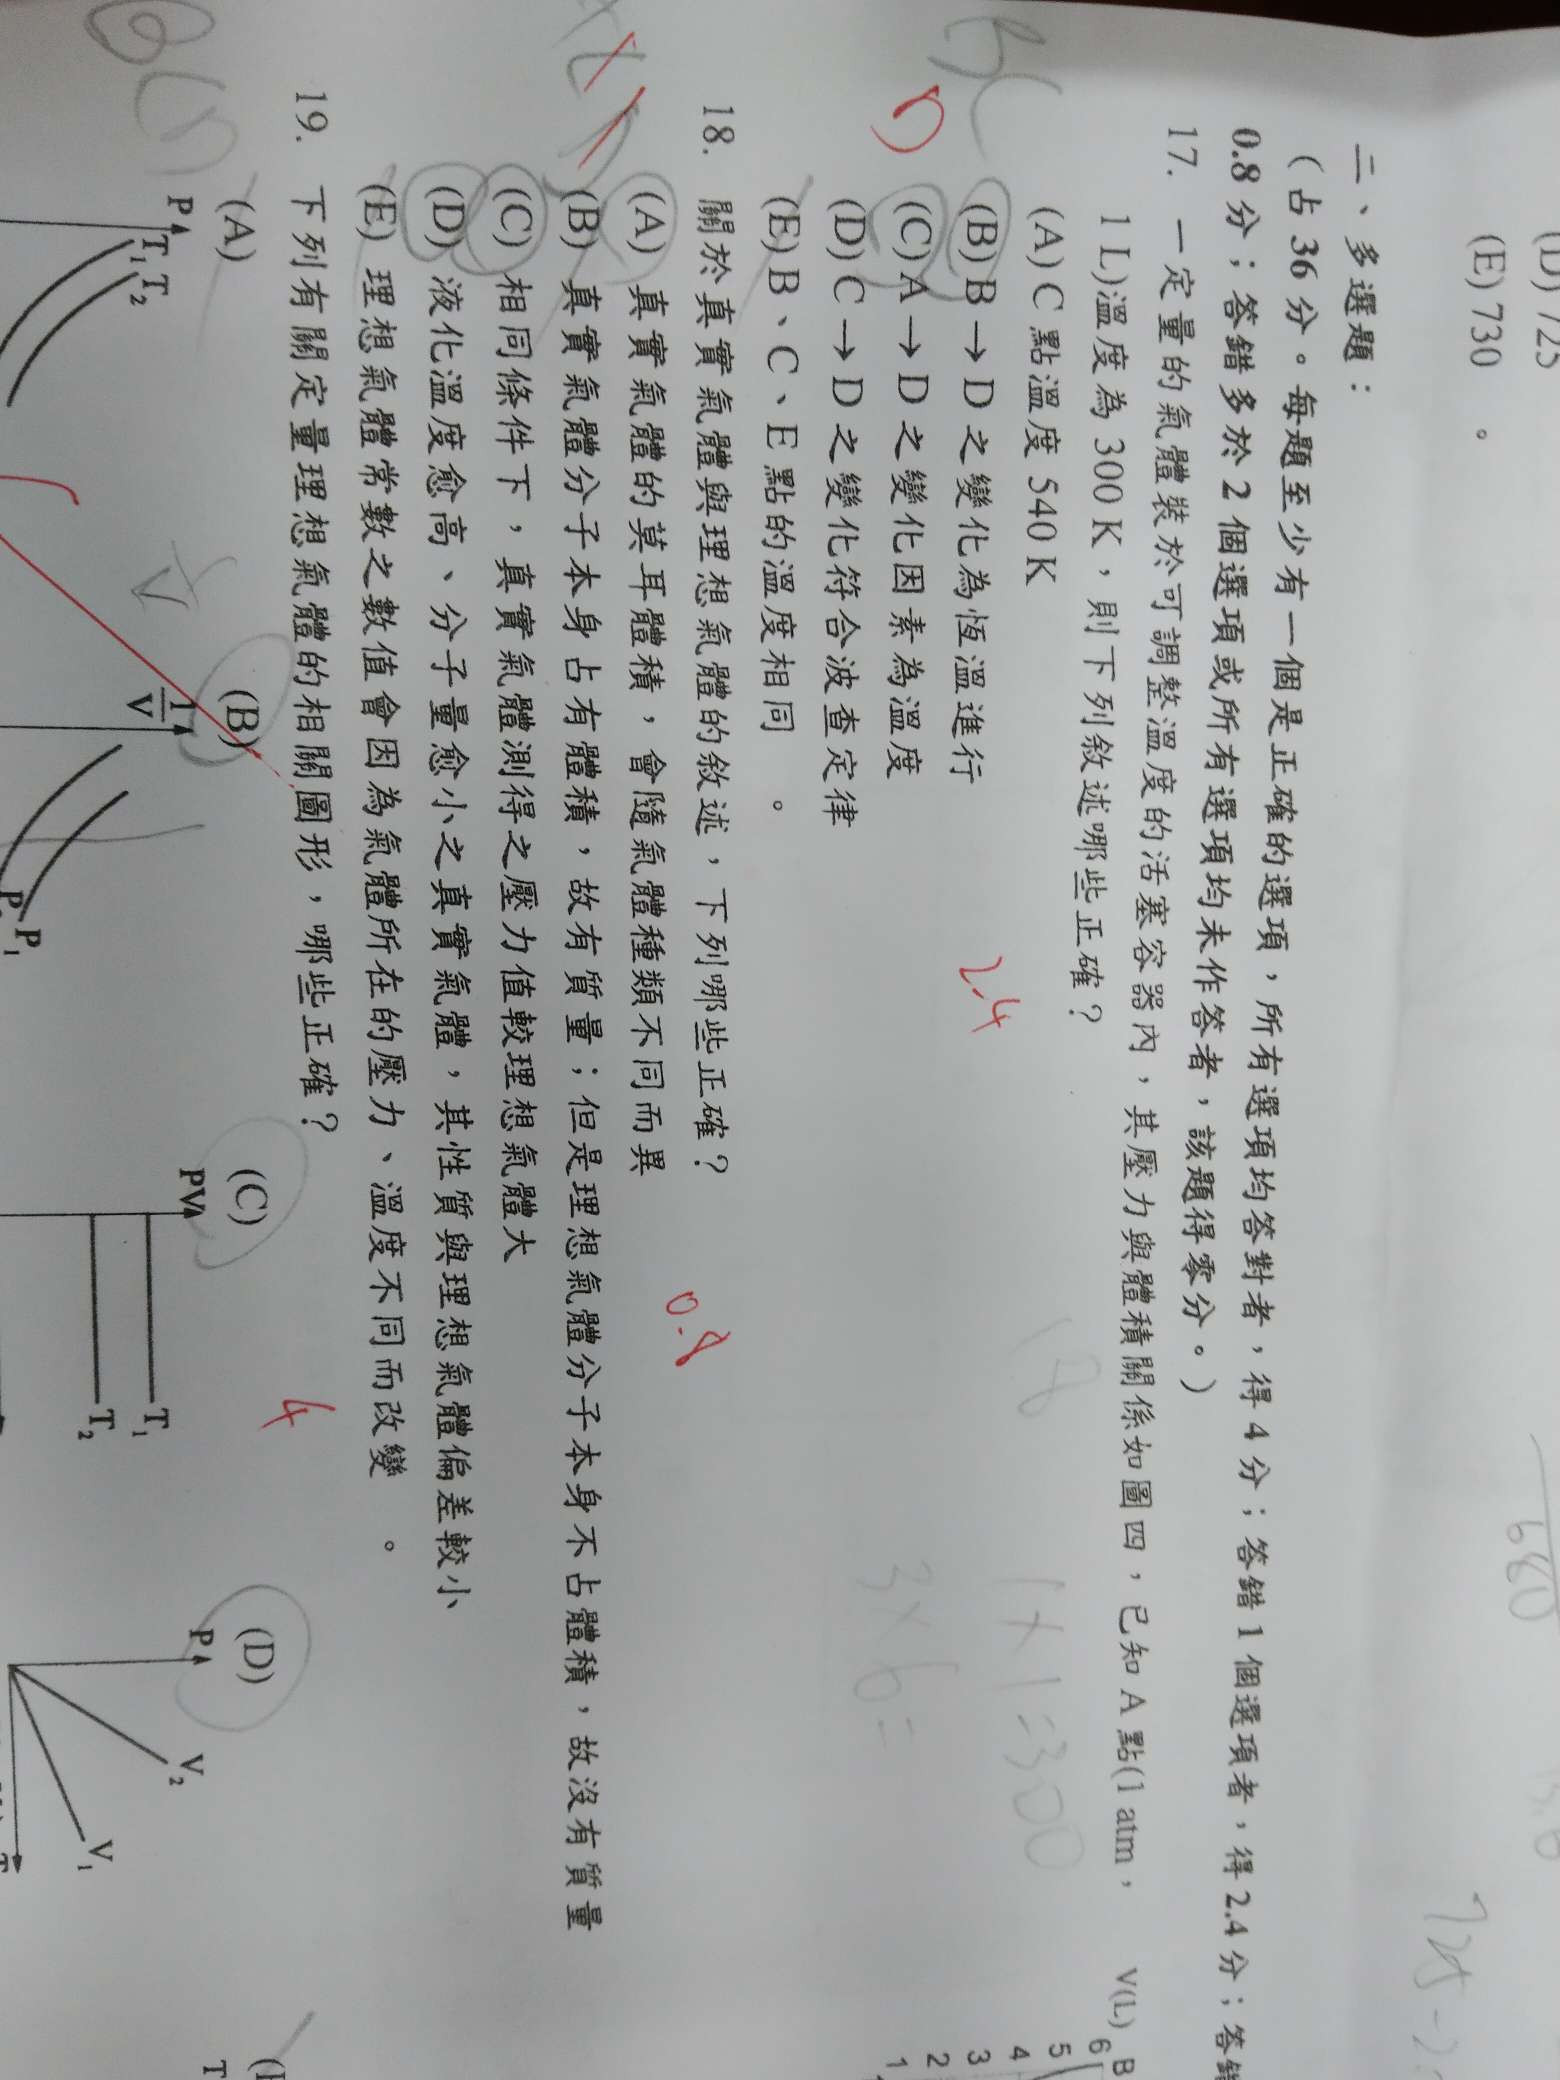 (D) 725
(E) 730 。
二、多選題：
（占 36 分。每題至少有一個是正確的選項，所有選項均答對者，得 4 分；答錯 1 個選項者，得 2.4 分；答錯
0.8 分；答錯多於 2 個選項或所有選項均未作答者，該題得零分。）
17. 一定量的氣體裝於可調整溫度的活塞容器內，其壓力與體積關係如圖四，已知 A 點(1 atm，
1 L)溫度為 300 K，則下列敘述哪些正確？
(A) C 點溫度 540 K
(B) B → D 之變化為恆溫進行
(C) A → D 之變化因素為溫度
(D) C → D 之變化符合波查定律
(E) B、C、E 點的溫度相同 。
V(L)
B
6
5
4
3
2
1
2.4
1×1=300
3×6=
18. 關於真實氣體與理想氣體的敘述，下列哪些正確？
(A) 真實氣體的莫耳體積，會隨氣體種類不同而異
(B) 真實氣體分子本身占有體積，故有質量；但是理想氣體分子本身不占體積，故沒有質量
(C) 相同條件下，真實氣體測得之壓力值較理想氣體大
(D) 液化溫度愈高、分子量愈小之真實氣體，其性質與理想氣體偏差較小
(E) 理想氣體常數之數值會因為氣體所在的壓力、溫度不同而改變 。
0.8
19. 下列有關定量理想氣體的相關圖形，哪些正確？
4
(A)
P
T₁ T₂
(B)
1/V
P₁
(C)
PV
T₁
T₂
(D)
P
V₂
V₁
T
T
680